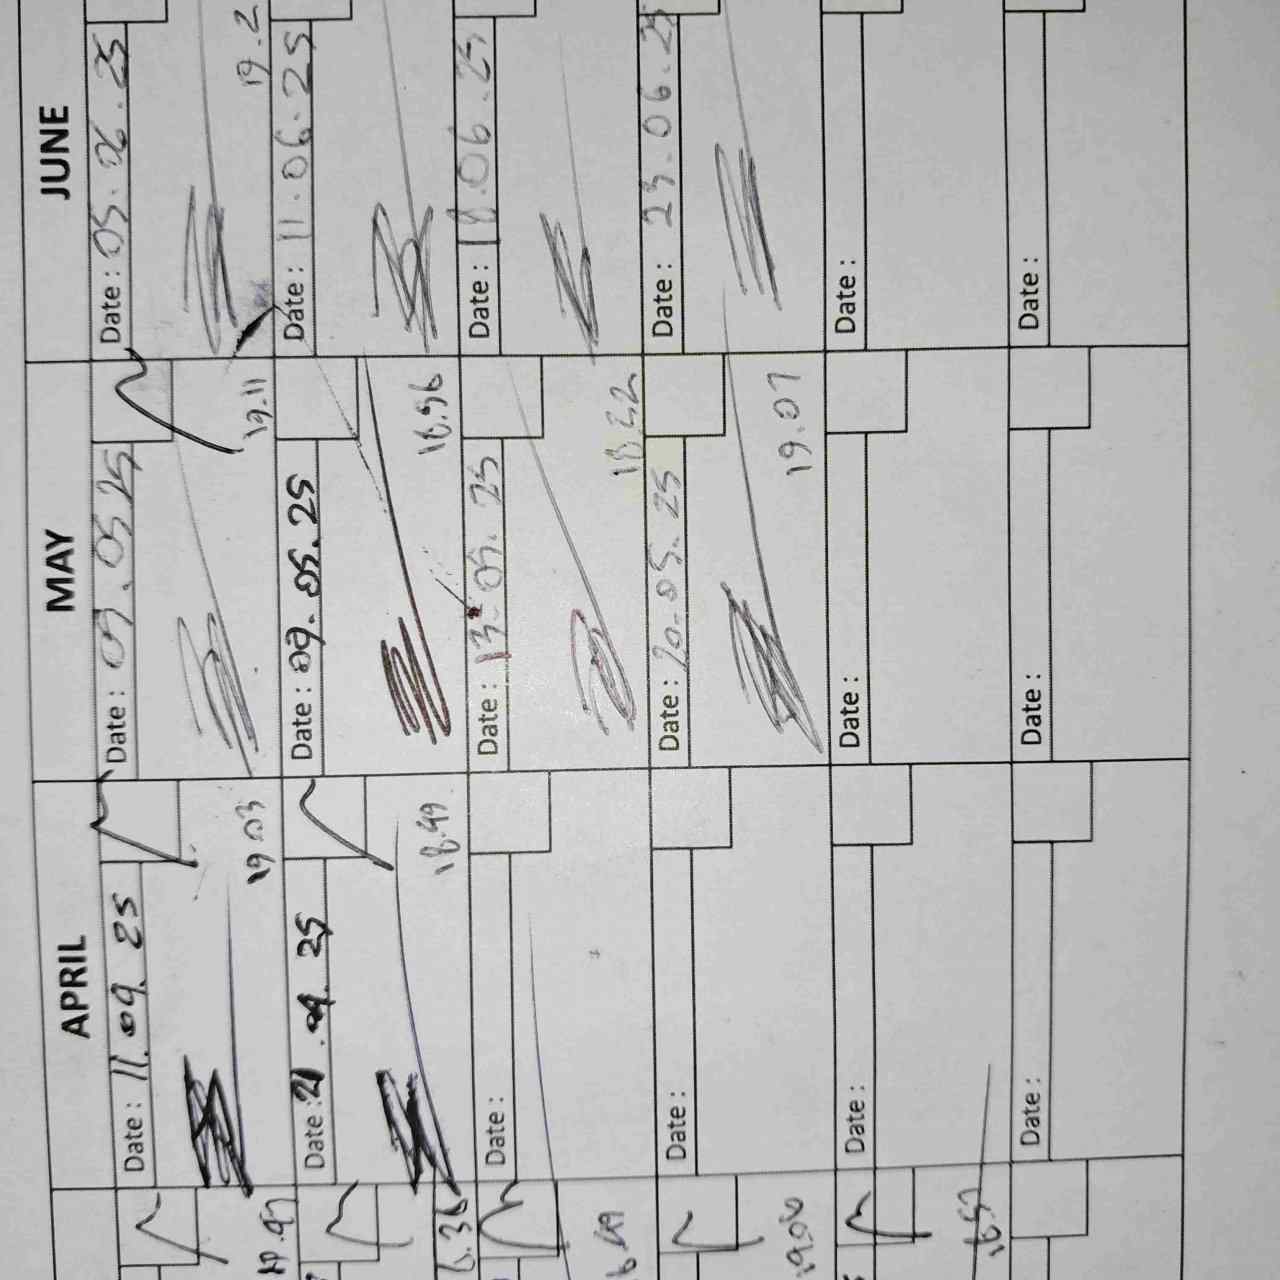 APRIL
Date : 11.04.25
19.03
Date : 21.04.25
18.49
Date :
Date :
Date :
Date :
MAY
Date : 05.25
19.11
Date : 09.05.25
18.56
Date : 13.05.25
18.22
Date : 20.05.25
19.07
Date :
Date :
JUNE
Date : 05.06.25
19.2
Date : 11.06.25
Date : 18.06.25
Date : 23.06.25
Date :
Date :
19.06
18.57